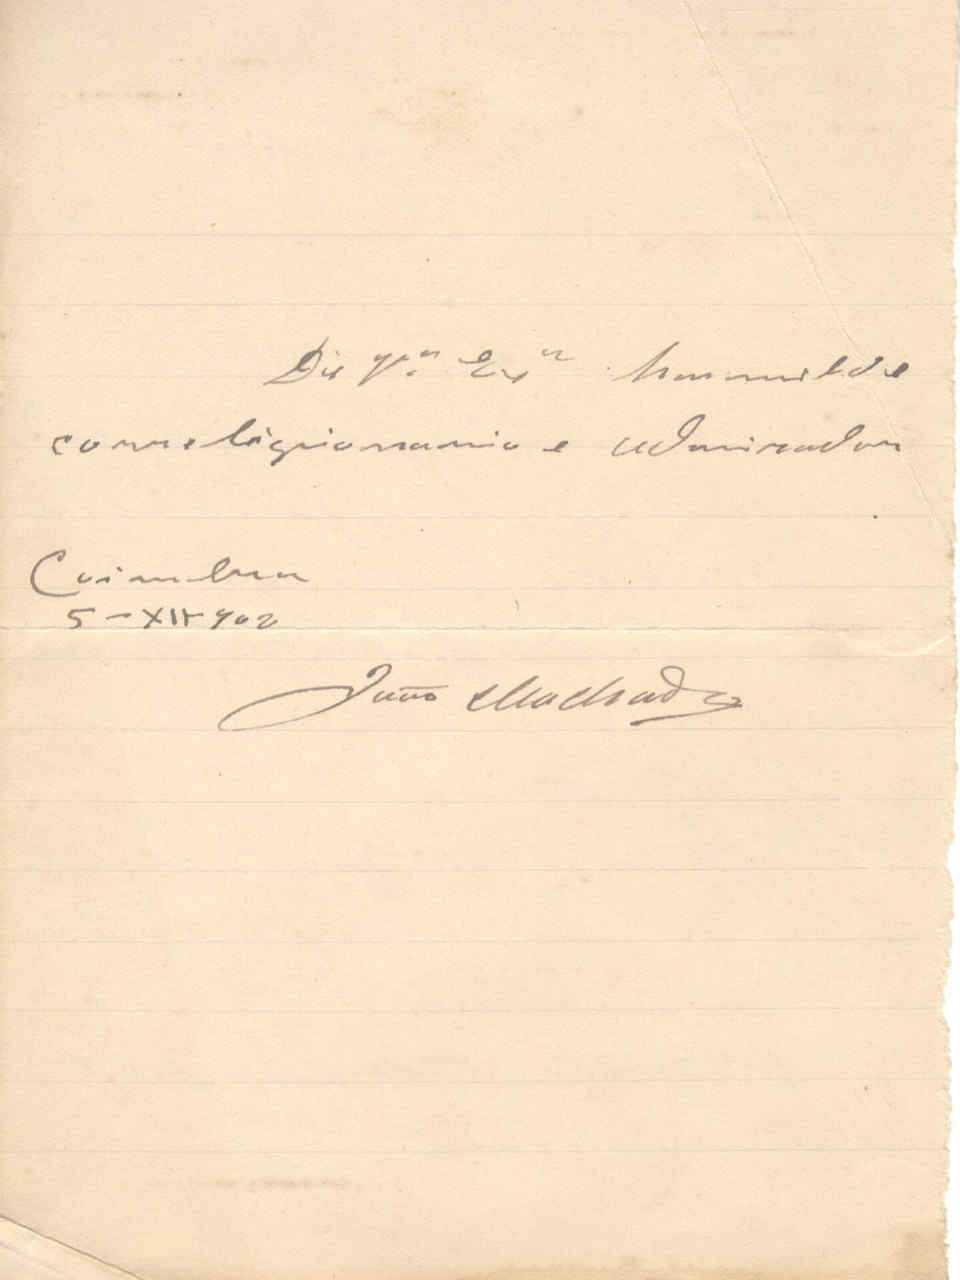 De V.ª Ex.ª humilde
correligionario e admirador
Coimbra
5-XII-902
João Machado